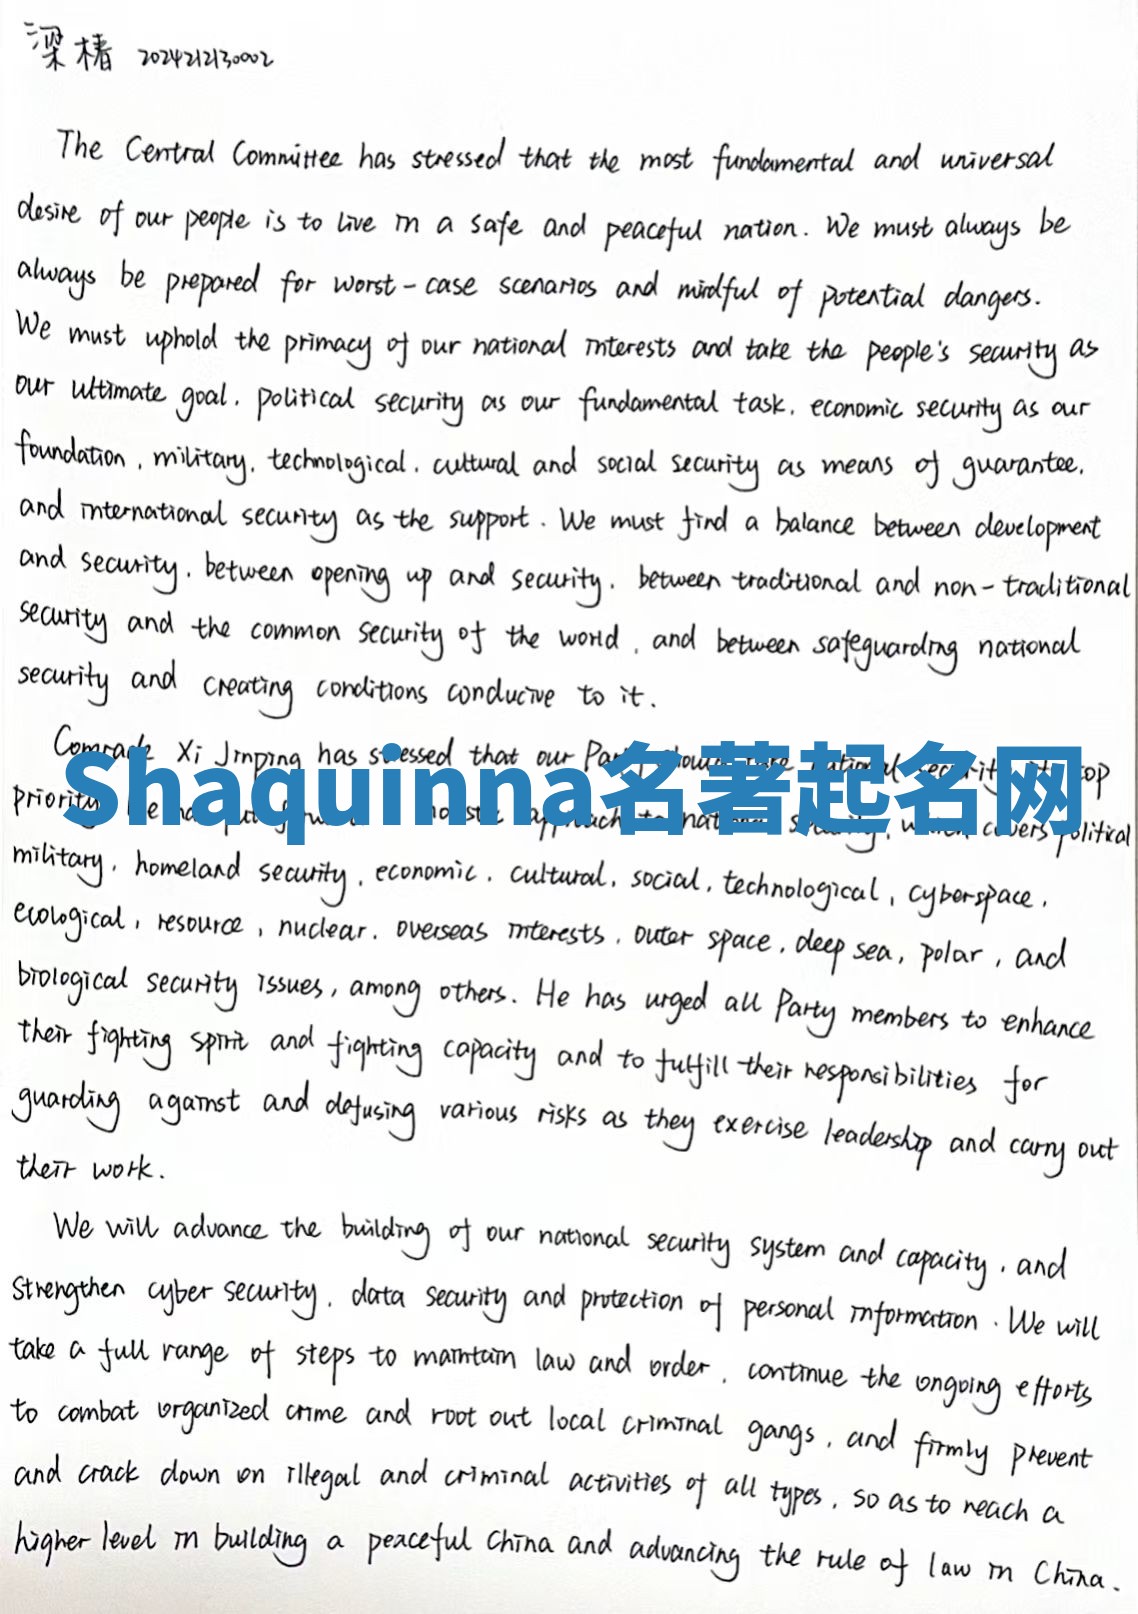 梁椿 2024212130002
The Central Committee has stressed that the most fundamental and universal
desire of our people is to live in a safe and peaceful nation. We must always be
always be prepared for worst-case scenarios and mindful of potential dangers.
We must uphold the primacy of our national interests and take the people's security as
our ultimate goal, political security as our fundamental task, economic security as our
foundation, military, technological, cultural and social security as means of guarantee,
and international security as the support. We must find a balance between development
and security, between opening up and security, between traditional and non-traditional
security and the common security of the world, and between safeguarding national
security and creating conditions conducive to it.
Comrade Xi Jinping has stressed that our Party national security top
Shaquinna名著起名网
priority. approach to national security, which covers political
military, homeland security, economic, cultural, social, technological, cyberspace,
ecological, resource, nuclear, overseas interests, outer space, deep sea, polar, and
biological security issues, among others. He has urged all Party members to enhance
their fighting spirit and fighting capacity and to fulfill their responsibilities for
guarding against and defusing various risks as they exercise leadership and carry out
their work.
We will advance the building of our national security system and capacity, and
strengthen cyber security, data security and protection of personal information. We will
take a full range of steps to maintain law and order, continue the ongoing efforts
to combat organized crime and root out local criminal gangs, and firmly prevent
and crack down on illegal and criminal activities of all types, so as to reach a
higher level in building a peaceful China and advancing the rule of law in China.